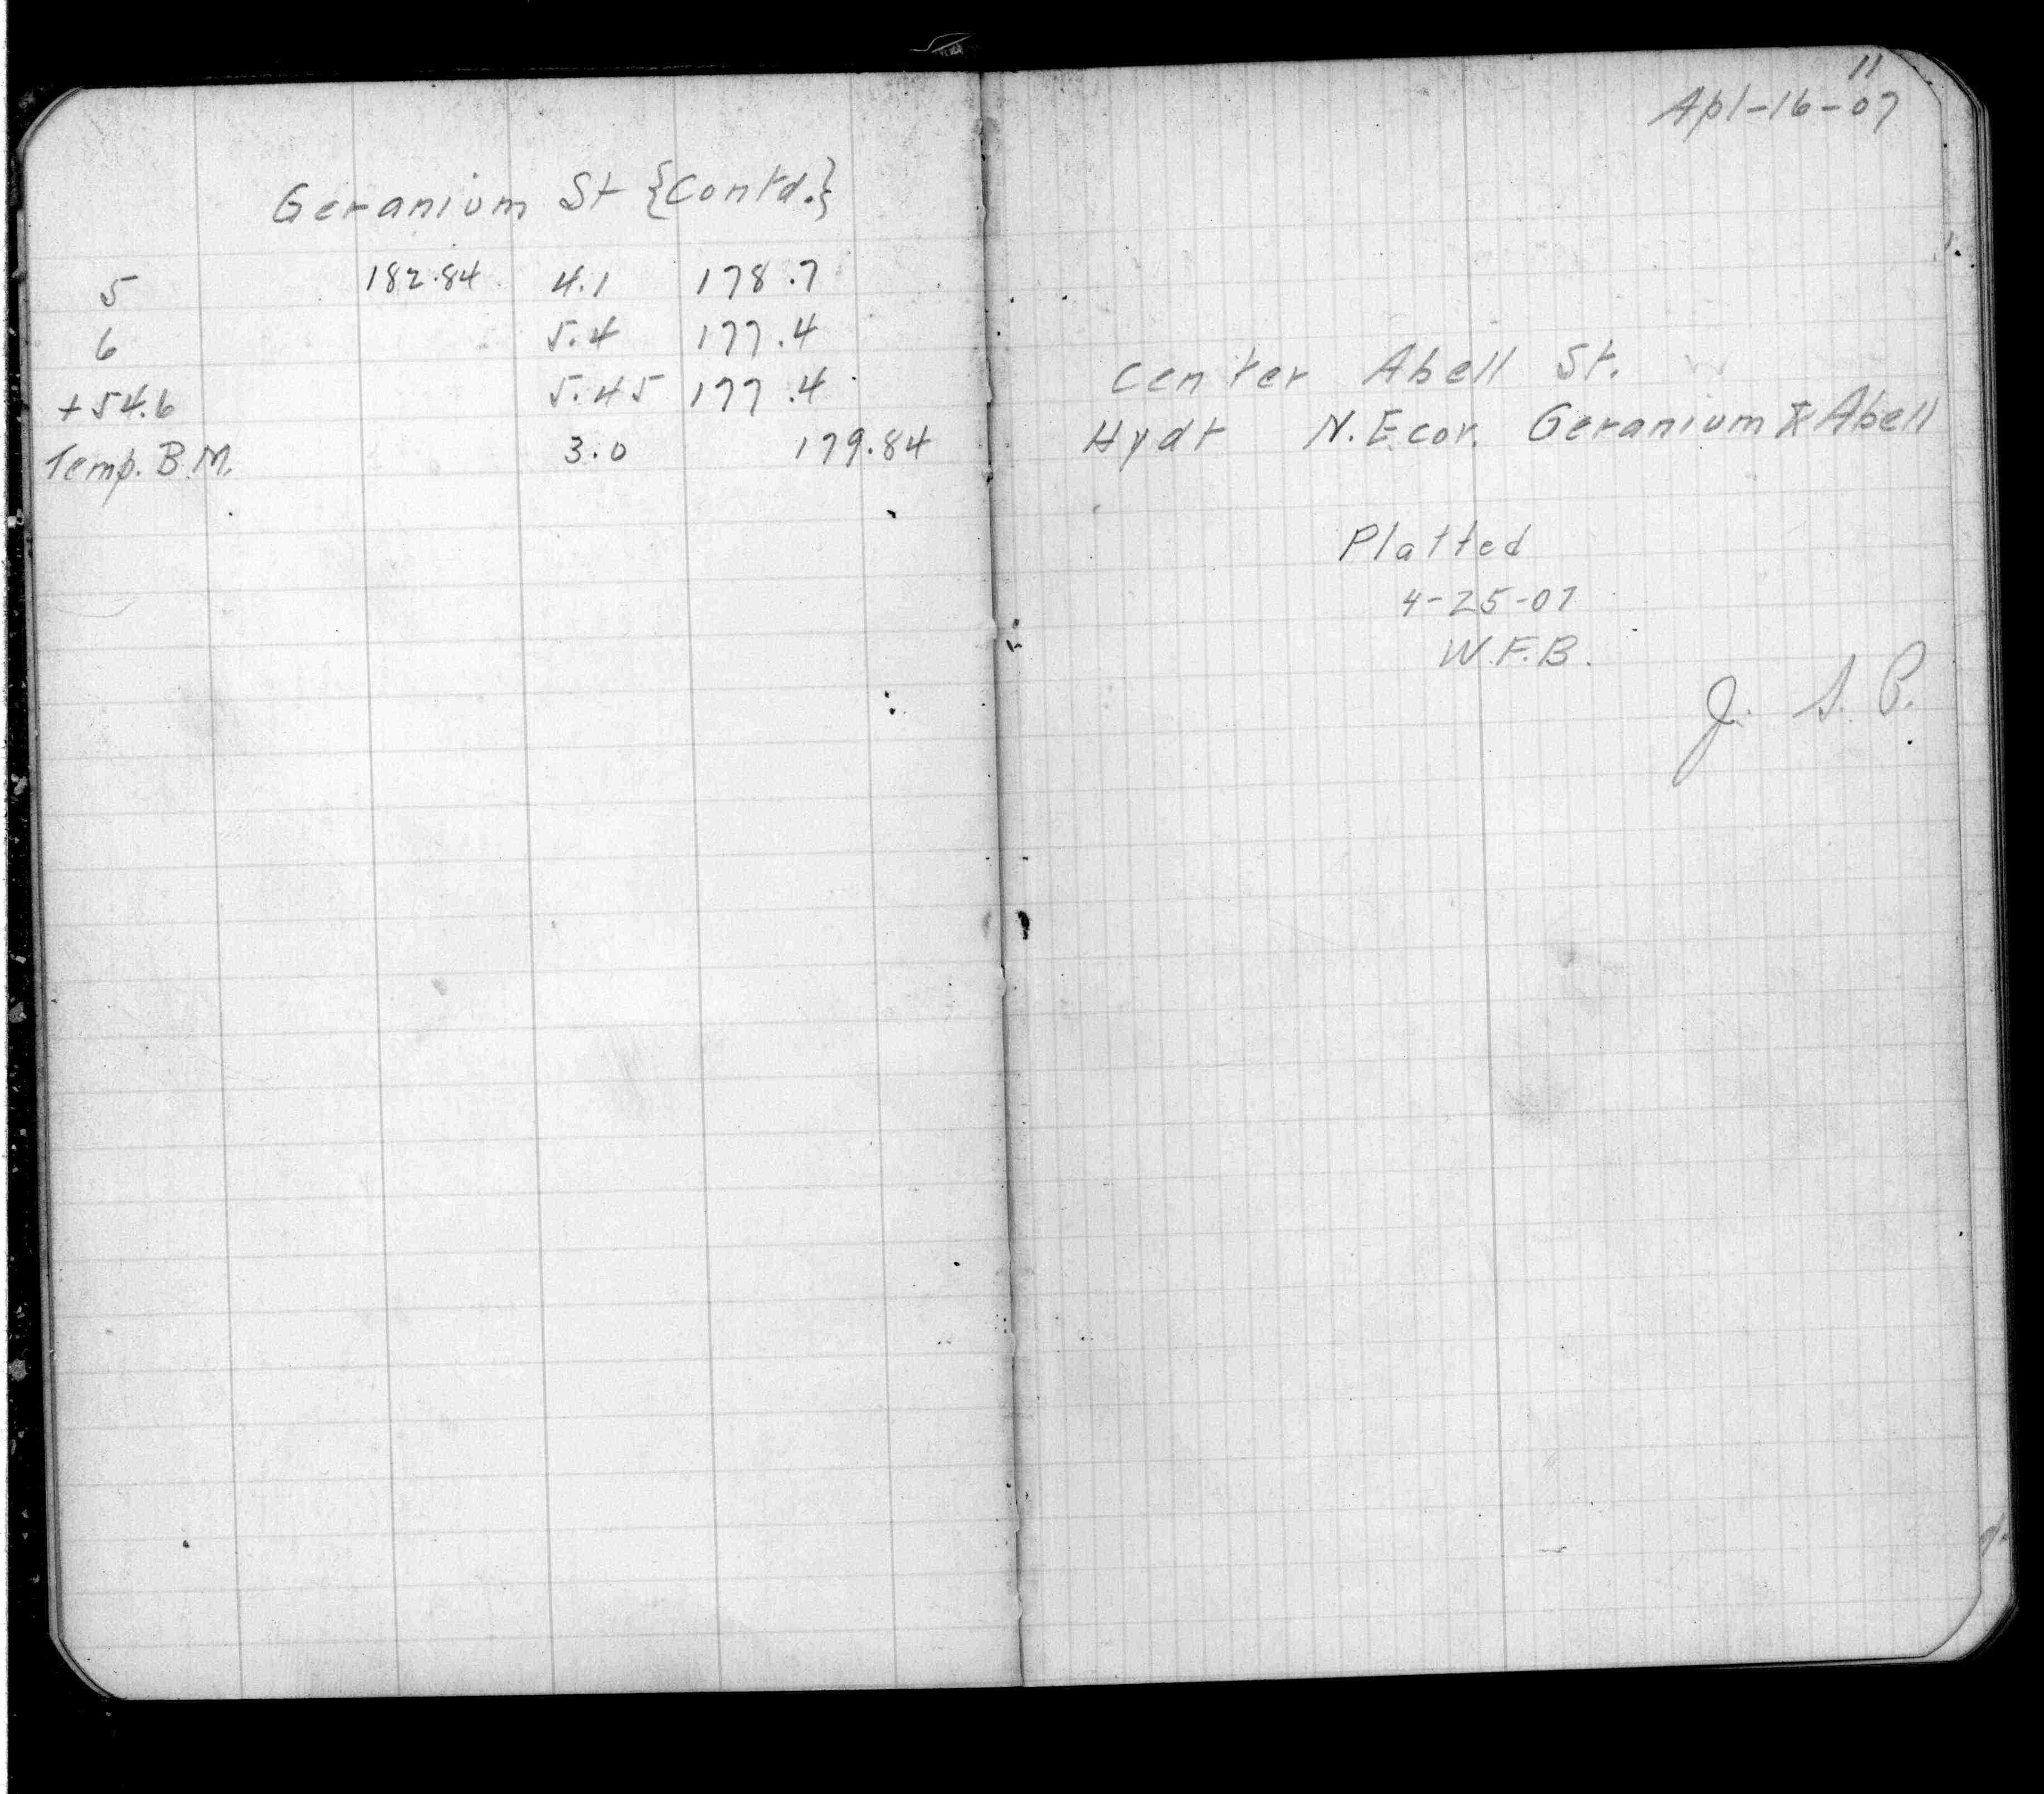 Geranium St {Contd.}
5 182.84 4.1 178.7
6 5.4 177.4
+54.6 5.45 177.4
Temp. B.M. 3.0 179.84
11
Apl-16-07
Center Abell St.
Hydt N.E cor. Geranium & Abell
Platted
4-25-07
W.F.B.
J. S. P.